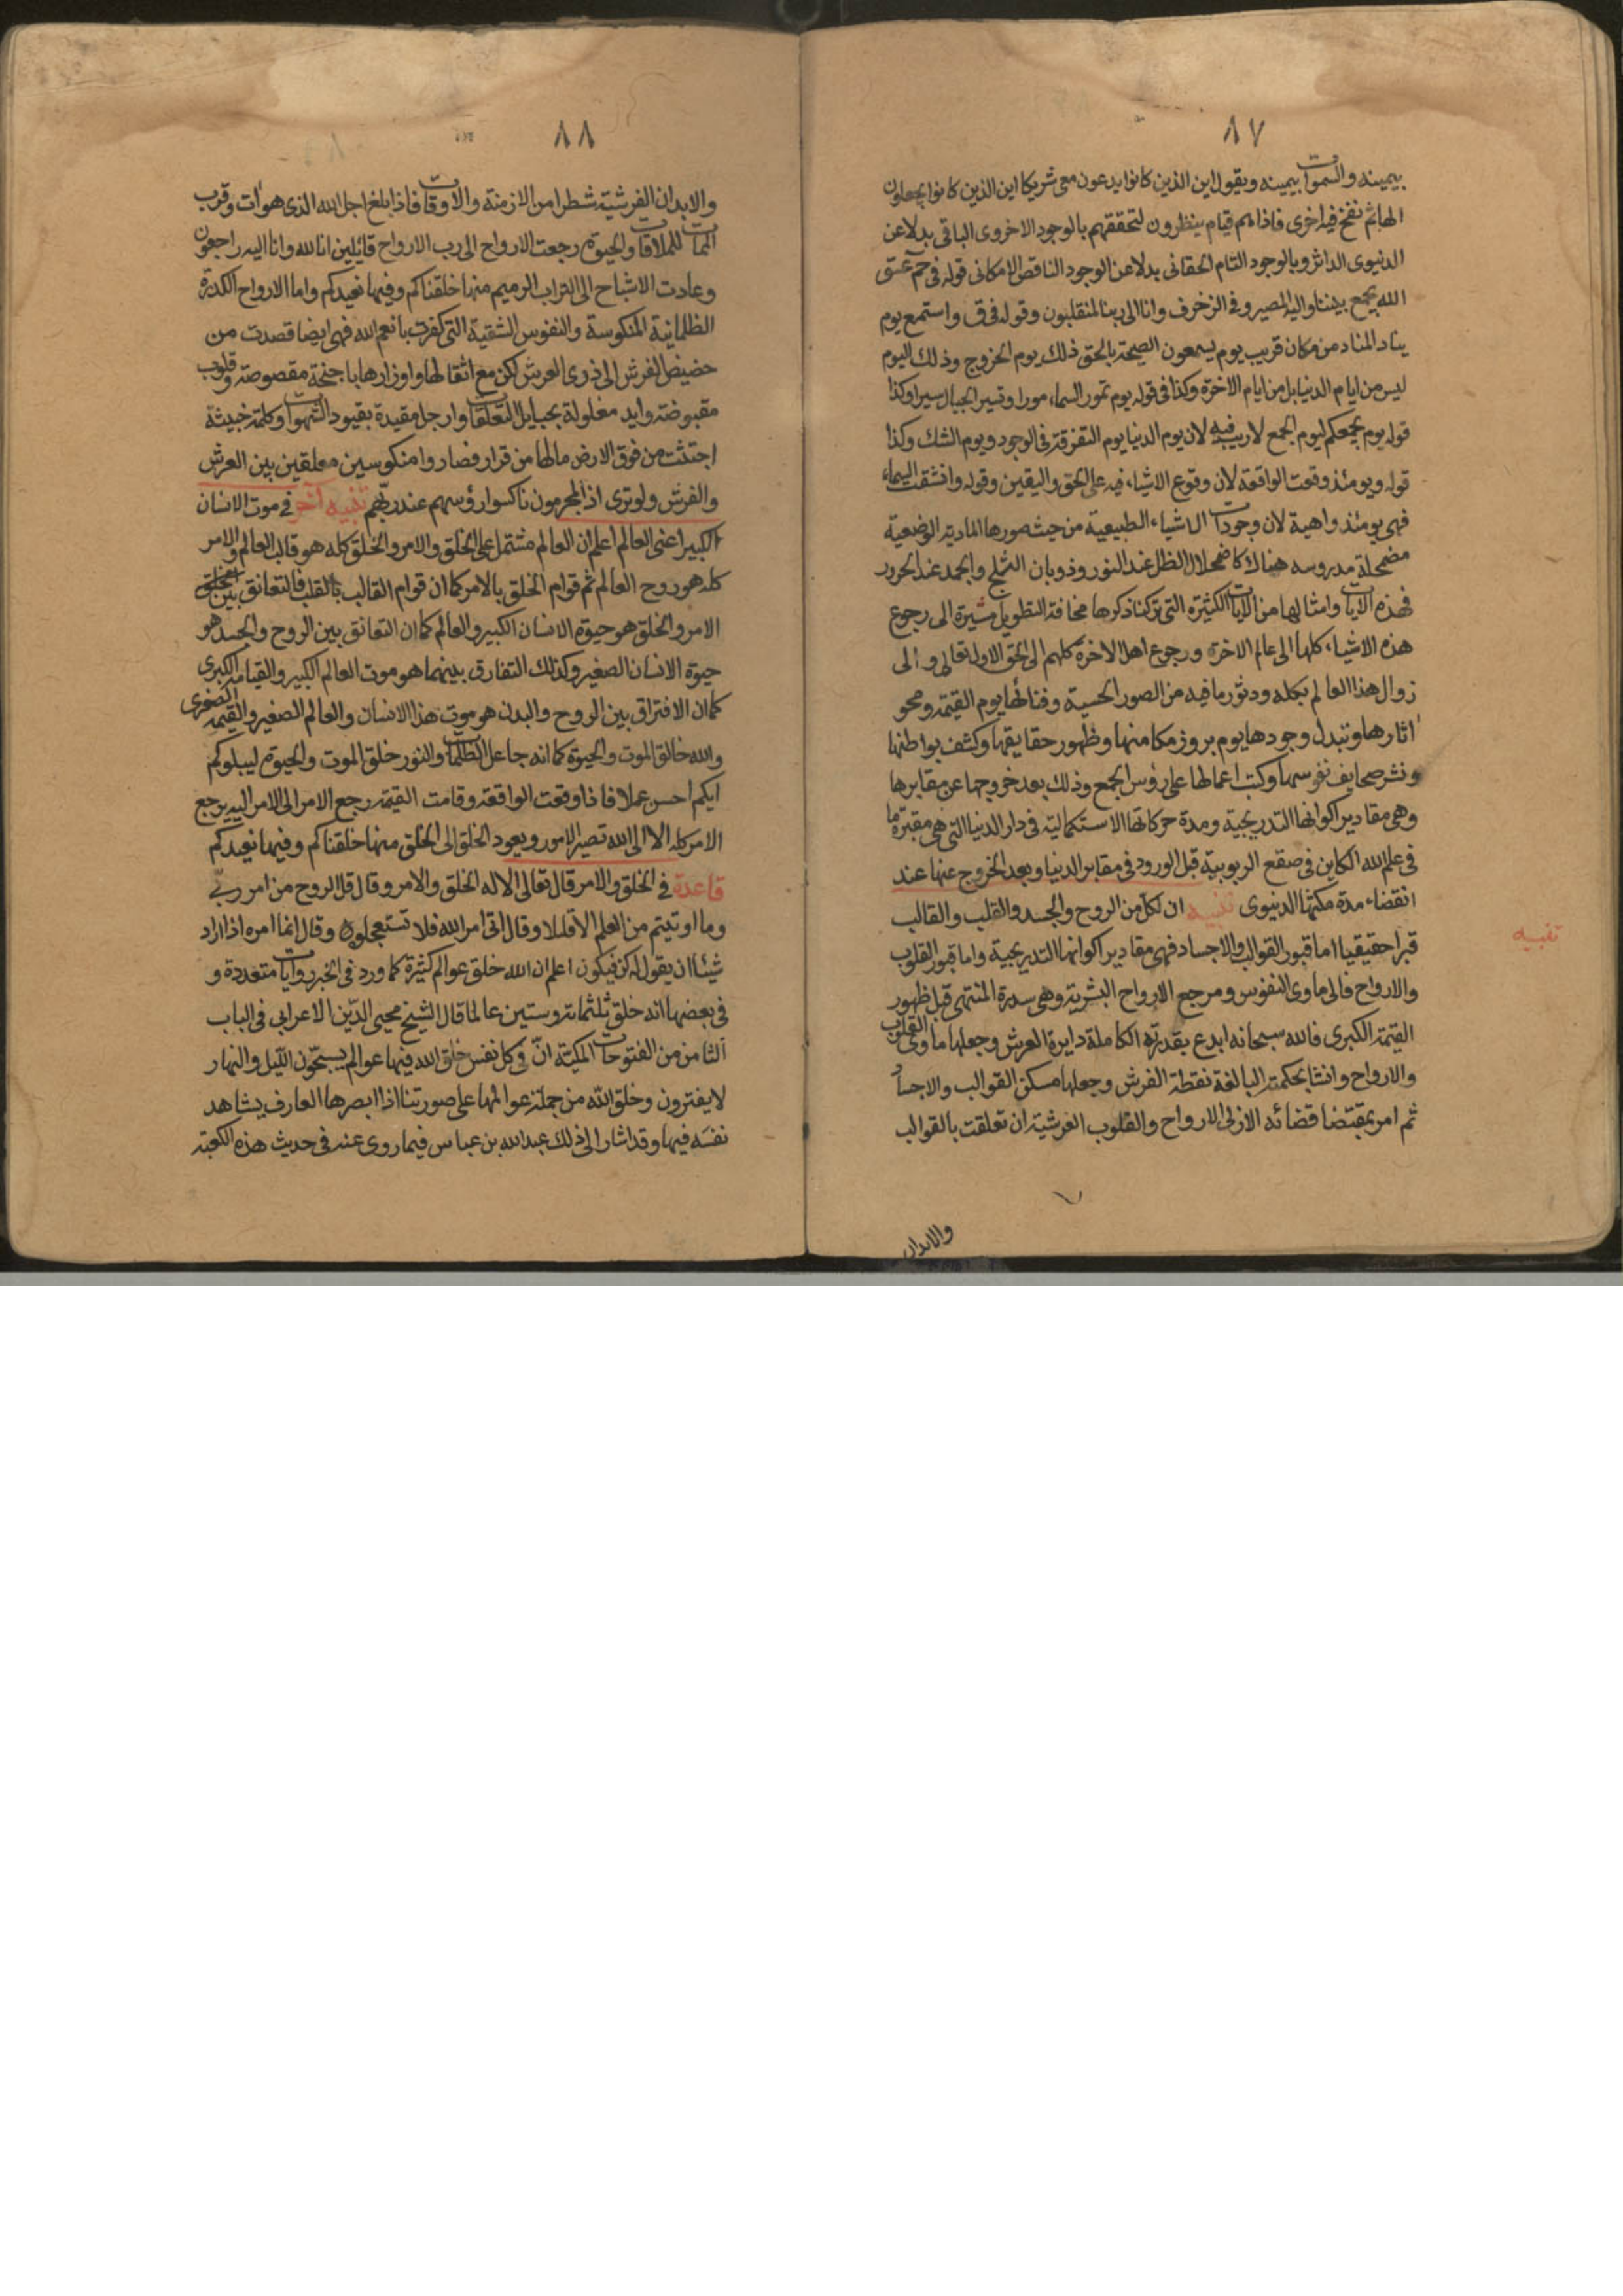 ٨٧
بيمينه والسموات بيمينه ويقول اين الذين كانوا يدعون معى شريكا اين الذين كانوا يجعلون
الها ثم نفخ فيه اخرى فاذا هم قيام ينظرون لتحققهم بالوجود الاخروى الباقى بدلا عن
الدنيوى الداثر وبالوجود التام الحقانى بدلا عن الوجود الناقص الامكانى قوله فى حم عسق
الله يجمع بيننا واليه المصير وفى الزخرف وانا الى ربنا لمنقلبون وقوله فى ق واستمع يوم
يناد المناد من مكان قريب يوم يسمعون الصيحة بالحق ذلك يوم الخروج وذلك اليوم
ليس من ايام الدنيا بل من ايام الاخرة وكذا فى قوله يوم تمور السماء مورا وتسير الجبال سيرا وكذا
قوله يوم يجمعكم ليوم الجمع لاريب فيه لان يوم الدنيا يوم التفرقة فى الوجود ويوم الشك وكذا
قوله ويومئذ وقعت الواقعة لان وقوع الاشياء فيه على الحق واليقين وقوله وانشقت السماء
فهى يومئذ واهية لان وجودات الاشياء الطبيعية من حيث صورها المادية الوضعية
مضمحلة مدروسه هناك كاضمحلال الظل عند النور وذوبان الثلج والجمد عند الحرور
فهذه الايات وامثالها من الايات الكثيرة التى تركنا ذكرها مخافة التطويل مشيرة الى رجوع
هذه الاشياء كلها الى عالم الاخرة ورجوع اهل الاخرة كلهم الى الحق الاول تعالى والى
زوال هذا العالم بكله ودثور ما فيه من الصور الحسية وفنائها يوم القيمة ومحو
اثارها وتبدل وجودها يوم بروز مكامنها وظهور حقايقها وكشف بواطنها
ونشر صحايف نفوسها وكتب اعمالها على رؤس الجمع وذلك بعد خروجها عن مقابرها
وهى مقادير اكوانها التدريجية ومدة حركاتها الاستكمالية فى دار الدنيا التى هى مقبرة ما
فى علم الله الكاين فى صقع الربوبية قبل الورود فى مقابر الدنيا وبعد الخروج عنها عند
انقضاء مدة مكثها الدنيوى تنبيه ان لكل من الروح والجسد والقلب والقالب
تنبيه
قبرا حقيقيا اما قبور القوالب والاجساد فهى مقادير اكوانها التدريجية واما قبور القلوب
والارواح فالى ماوى النفوس ومرجع الارواح البشرية وهى سدرة المنتهى قبل ظهور
القيمة الكبرى فالله سبحانه ابدع بقدرته الكاملة دايرة العرش وجعلها ماوى القلوب
والارواح وانشا بحكمته البالغة نقطة الفرش وجعلها مسكن القوالب والاجساد
ثم امر بمقتضا قضائه الازلى الارواح والقلوب العرشية ان تعلقت بالقوالب
والابدان
٨٨
والابدان الفرشية شطرا من الازمنة والاوقات فاذا بلغ اجل الله الذى هوآت وقرب
الممات للملاقات والحيوة رجعت الارواح الى رب الارواح قائلين انا لله وانا اليه راجعون
وعادت الاشباح الى التراب الرميم منها خلقناكم وفيها نعيدكم واما الارواح الكدرة
الظلمانية المنكوسة والنفوس الشقية التى كفرت بانعم الله فهى ايضا قصدت من
حضيض الفرش الى ذرى العرش لكن مع اثقالها واوزارها باجنحة مقصوصة وقلوب
مقبوضة وايد مغلولة بحبايل التعلقات وارجل مقيدة بقيود الشهوات وكلمة خبيثة
اجتثت من فوق الارض مالها من قرار فصاروا منكوسين معلقين بين العرش
والفرش ولو ترى اذ المجرمون ناكسوا رؤسهم عند ربهم تنبيه آخر فى موت الانسان
الكبير اعنى العالم اعلم ان العالم مشتمل على الخلق والامر والخلق كله هو قالب العالم والامر
كله هو روح العالم ثم قوام الخلق بالامر كما ان قوام القالب بالقلب فالتعانق بين
الامر والخلق هو حيوة الانسان الكبير والعالم كما ان التعانق بين الروح والجسد هو
حيوة الانسان الصغير وكذلك التفارق بينهما هو موت العالم الكبير والقيامة الكبرى
كما ان الافتراق بين الروح والبدن هو موت هذا الانسان والعالم الصغير والقيمة الصغرى
والله خالق الموت والحيوة كما انه جاعل الظلمات والنور خلق الموت والحيوة ليبلوكم
ايكم احسن عملا فاذا وقعت الواقعة وقامت القيمة رجع الامر الى الامر اليه يرجع
الامر كله الا الى الله تصير الامور ويعود الخلق الى الخلق منها خلقناكم وفيها نعيدكم
قاعدة فى الخلق والامر قال تعالى الا له الخلق والامر وقال قل الروح من امر ربى
وما اوتيتم من العلم الا قليلا وقال اتى امر الله فلا تستعجلوه وقال انما امره اذا اراد
شيئا ان يقول له كن فيكون اعلم ان الله خلق عوالم كثيرة كما ورد فى الخبر روايات متعددة و
فى بعضها انه خلق ثلثمائة وستين عالما قال الشيخ محيى الدين الاعرابى فى الباب
الثامن من الفتوحات المكية ان فى كل نفس خلق الله فيها عوالم يسبحون الليل والنهار
لا يفترون وخلق الله من جملة عوالمها على صورتنا اذا ابصرها العارف يشاهد
نفسه فيها وقد اشار الى ذلك عبد الله بن عباس فيما روى عنه فى حديث هذه الكعبة